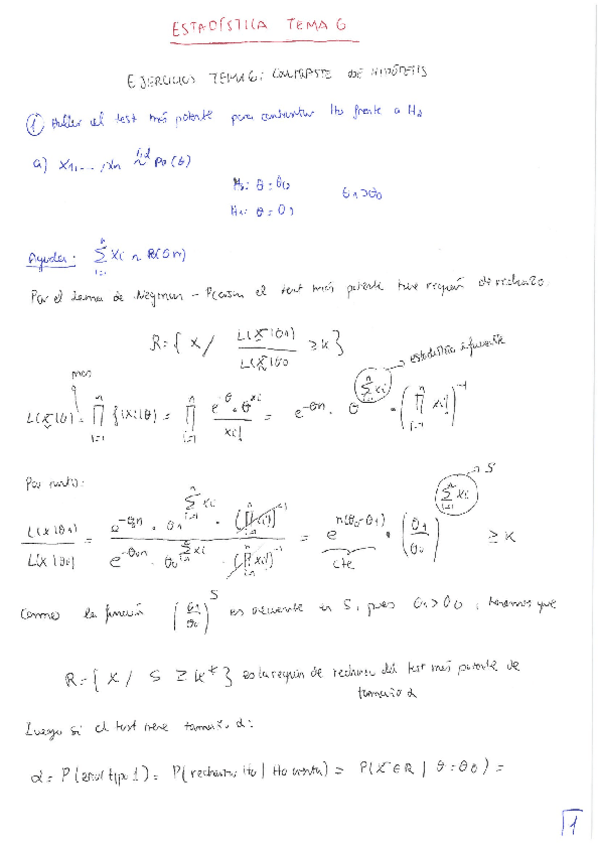 ESTADÍSTICA TEMA 6
EJERCICIOS TEMA 6: CONTRASTE DE HIPÓTESIS
① Hallar el test más potente para contrastar H₀ frente a H₁
a) X₁,...,Xn iid~ Po(θ)
H₀: θ = θ₀
H₁: θ = θ₁
θ₁ > θ₀
Ayuda: Σ(i=1..n) Xi ~ P(θn)
Por el Lema de Neyman - Pearson el test más potente tiene región de rechazo:
R = { X / L(X|θ₁) / L(X|θ₀) ≥ K }
estadístico suficiente
L(X|θ) = ∏(i=1..n) f(xi|θ) = ∏(i=1..n) e^-θ · θ^xi / xi! = e^-θn · θ^(Σ(i=1..n) xi) · (∏(i=1..n) xi!)^-1
Por tanto:
L(X|θ₁) / L(X|θ₀) = e^-θ₁n · θ₁^(Σ(i=1..n) xi) · (∏ xi!)^-1 / e^-θ₀n · θ₀^(Σ xi) · (∏ xi!)^-1 = e^n(θ₀-θ₁) · (θ₁/θ₀)^(Σ(i=1..n) xi) ≥ K
cte
→ S
Como la función (θ₁/θ₀)^S es creciente en S, pues θ₁ > θ₀, tenemos que
R = { X / S ≥ K* } es la región de rechazo del test más potente de
tamaño α
Luego si el test tiene tamaño α:
α = P(error tipo 1) = P(rechazar H₀ | H₀ cierta) = P(X ∈ R | θ = θ₀) =
1